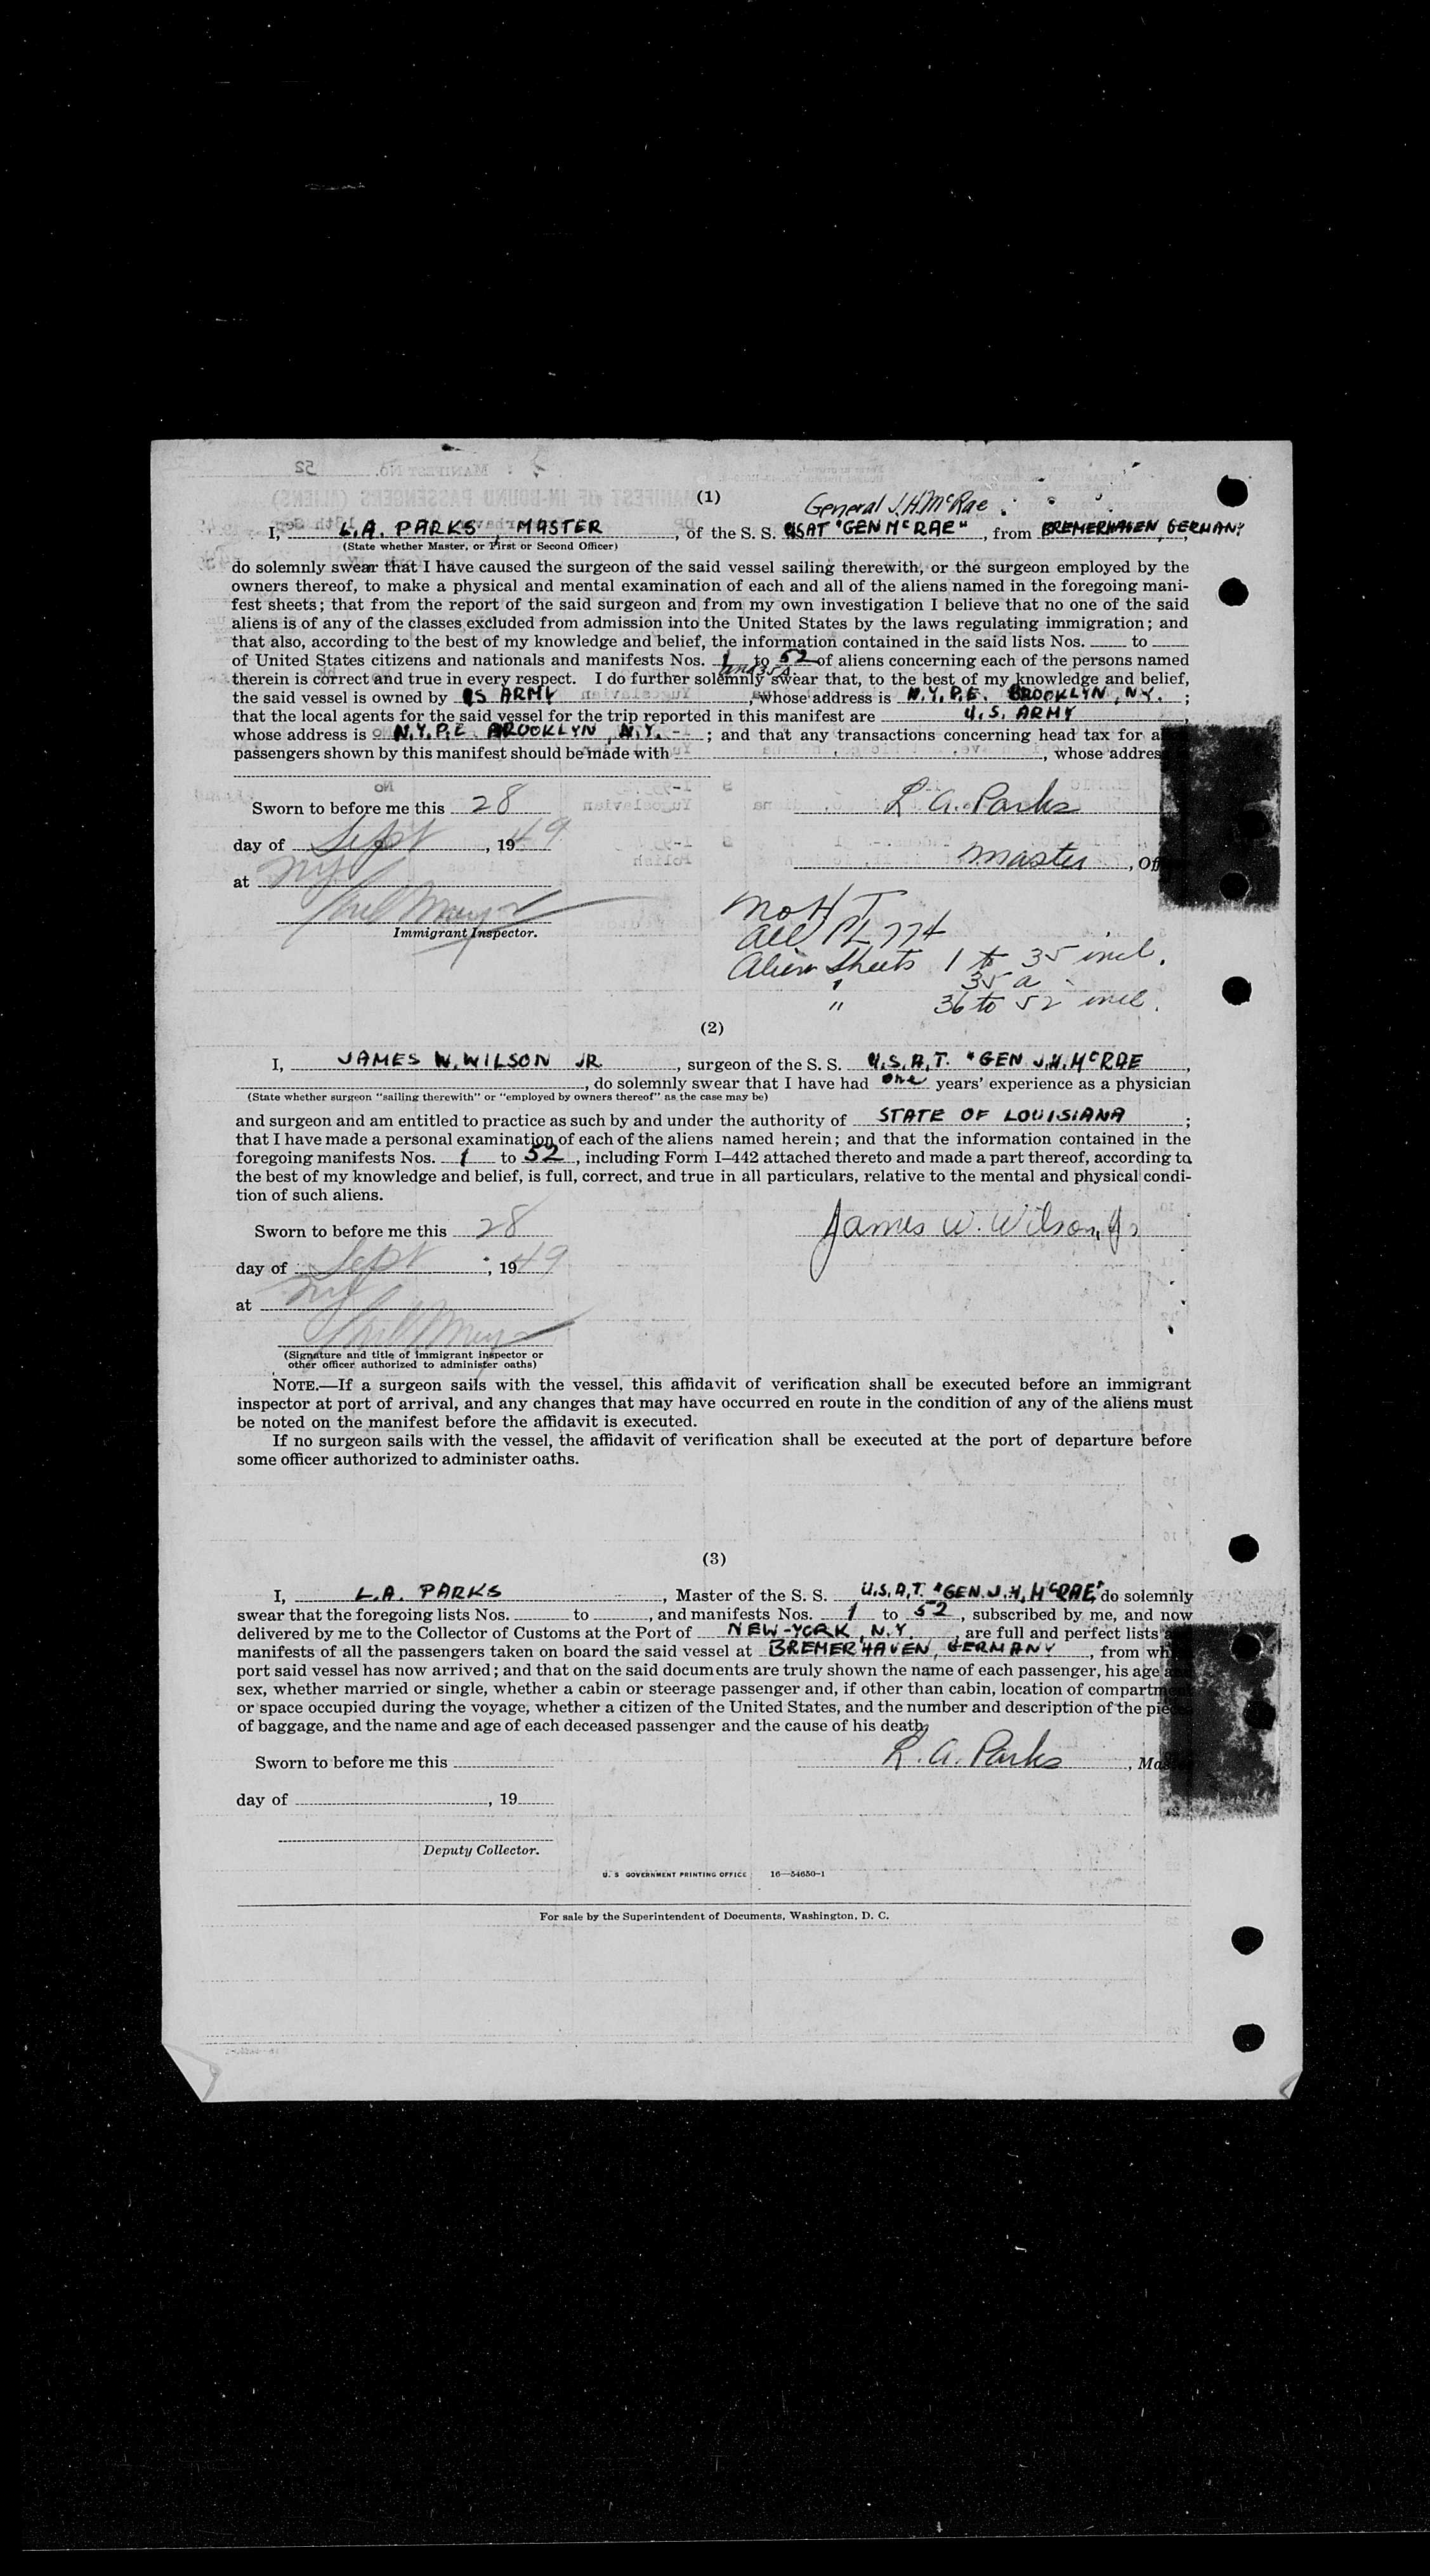 (1)
General J.H. McRae
I, L.A. PARKS, MASTER, of the S. S. USAT "GEN McRAE", from BREMERHAVEN, GERMANY
(State whether Master, or First or Second Officer)
do solemnly swear that I have caused the surgeon of the said vessel sailing therewith, or the surgeon employed by the
owners thereof, to make a physical and mental examination of each and all of the aliens named in the foregoing mani-
fest sheets; that from the report of the said surgeon and from my own investigation I believe that no one of the said
aliens is of any of the classes excluded from admission into the United States by the laws regulating immigration; and
that also, according to the best of my knowledge and belief, the information contained in the said lists Nos. to
of United States citizens and nationals and manifests Nos. 1 to 52 of aliens concerning each of the persons named
and 35a
therein is correct and true in every respect. I do further solemnly swear that, to the best of my knowledge and belief,
the said vessel is owned by US ARMY, whose address is N.Y.P.E. BROOKLYN, N.Y. ;
that the local agents for the said vessel for the trip reported in this manifest are U.S. ARMY,
whose address is N.Y.P.E. BROOKLYN, N.Y. - ; and that any transactions concerning head tax for a
passengers shown by this manifest should be made with , whose addres
Sworn to before me this 28
L. A. Parks
day of Sept, 1949
master, Of
at NY
Immigrant Inspector.
No H T
All PL 774
Alien Sheets 1 to 35 incl.
" 35 a
" 36 to 52 incl.
(2)
I, JAMES W. WILSON JR., surgeon of the S. S. U.S.A.T. "GEN J.H. McRAE,
, do solemnly swear that I have had one years' experience as a physician
(State whether surgeon "sailing therewith" or "employed by owners thereof" as the case may be)
and surgeon and am entitled to practice as such by and under the authority of STATE OF LOUISIANA ;
that I have made a personal examination of each of the aliens named herein; and that the information contained in the
foregoing manifests Nos. 1 to 52, including Form I–442 attached thereto and made a part thereof, according to
the best of my knowledge and belief, is full, correct, and true in all particulars, relative to the mental and physical condi-
tion of such aliens.
Sworn to before me this 28
James W. Wilson, Jr
day of Sept, 1949
at NY
(Signature and title of immigrant inspector or
other officer authorized to administer oaths)
NOTE.—If a surgeon sails with the vessel, this affidavit of verification shall be executed before an immigrant
inspector at port of arrival, and any changes that may have occurred en route in the condition of any of the aliens must
be noted on the manifest before the affidavit is executed.
If no surgeon sails with the vessel, the affidavit of verification shall be executed at the port of departure before
some officer authorized to administer oaths.
(3)
I, L.A. PARKS, Master of the S. S. U.S.A.T. "GEN. J.H. McRAE" do solemnly
swear that the foregoing lists Nos. to , and manifests Nos. 1 to 52, subscribed by me, and now
delivered by me to the Collector of Customs at the Port of NEW-YORK, N.Y., are full and perfect lists a
manifests of all the passengers taken on board the said vessel at BREMERHAVEN, GERMANY, from wh
port said vessel has now arrived; and that on the said documents are truly shown the name of each passenger, his age
sex, whether married or single, whether a cabin or steerage passenger and, if other than cabin, location of compartment
or space occupied during the voyage, whether a citizen of the United States, and the number and description of the pie
of baggage, and the name and age of each deceased passenger and the cause of his death.
Sworn to before me this
L. A. Parks, Mas
day of , 19
Deputy Collector.
U. S. GOVERNMENT PRINTING OFFICE 16—54650-1
For sale by the Superintendent of Documents, Washington, D. C.